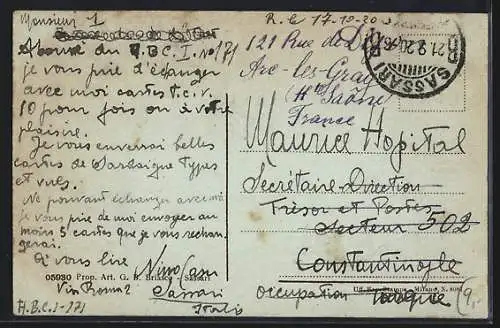 Monsieur 1
Abonné du A.B.C.I. no 171
je vous prie d'échanger
avec moi cartes t.c.v.
10 pour fois ou à votre
plaisire.
Je vous envorai belles
cartes de Sardaigne Types
et vues.
Ne pouvant échanger avec moi
je vous prie de moi envoyer au
moins 5 cartes que je vous rechan
gerai.
A vous lire
05930 Prop. Art. G. Sassari
Via Roma 2 Sassari
Italie
A.B.C.I-171
R. le 17-10-20
121 Rue de
Arc-les-Gray
(Hte Saône)
France
SASSARI
21.9.20
Maurice Hopital
Secrétaire-Direction
Trésor et Postes
Secteur 502
Constantinople
occupation
Milano
(9,-